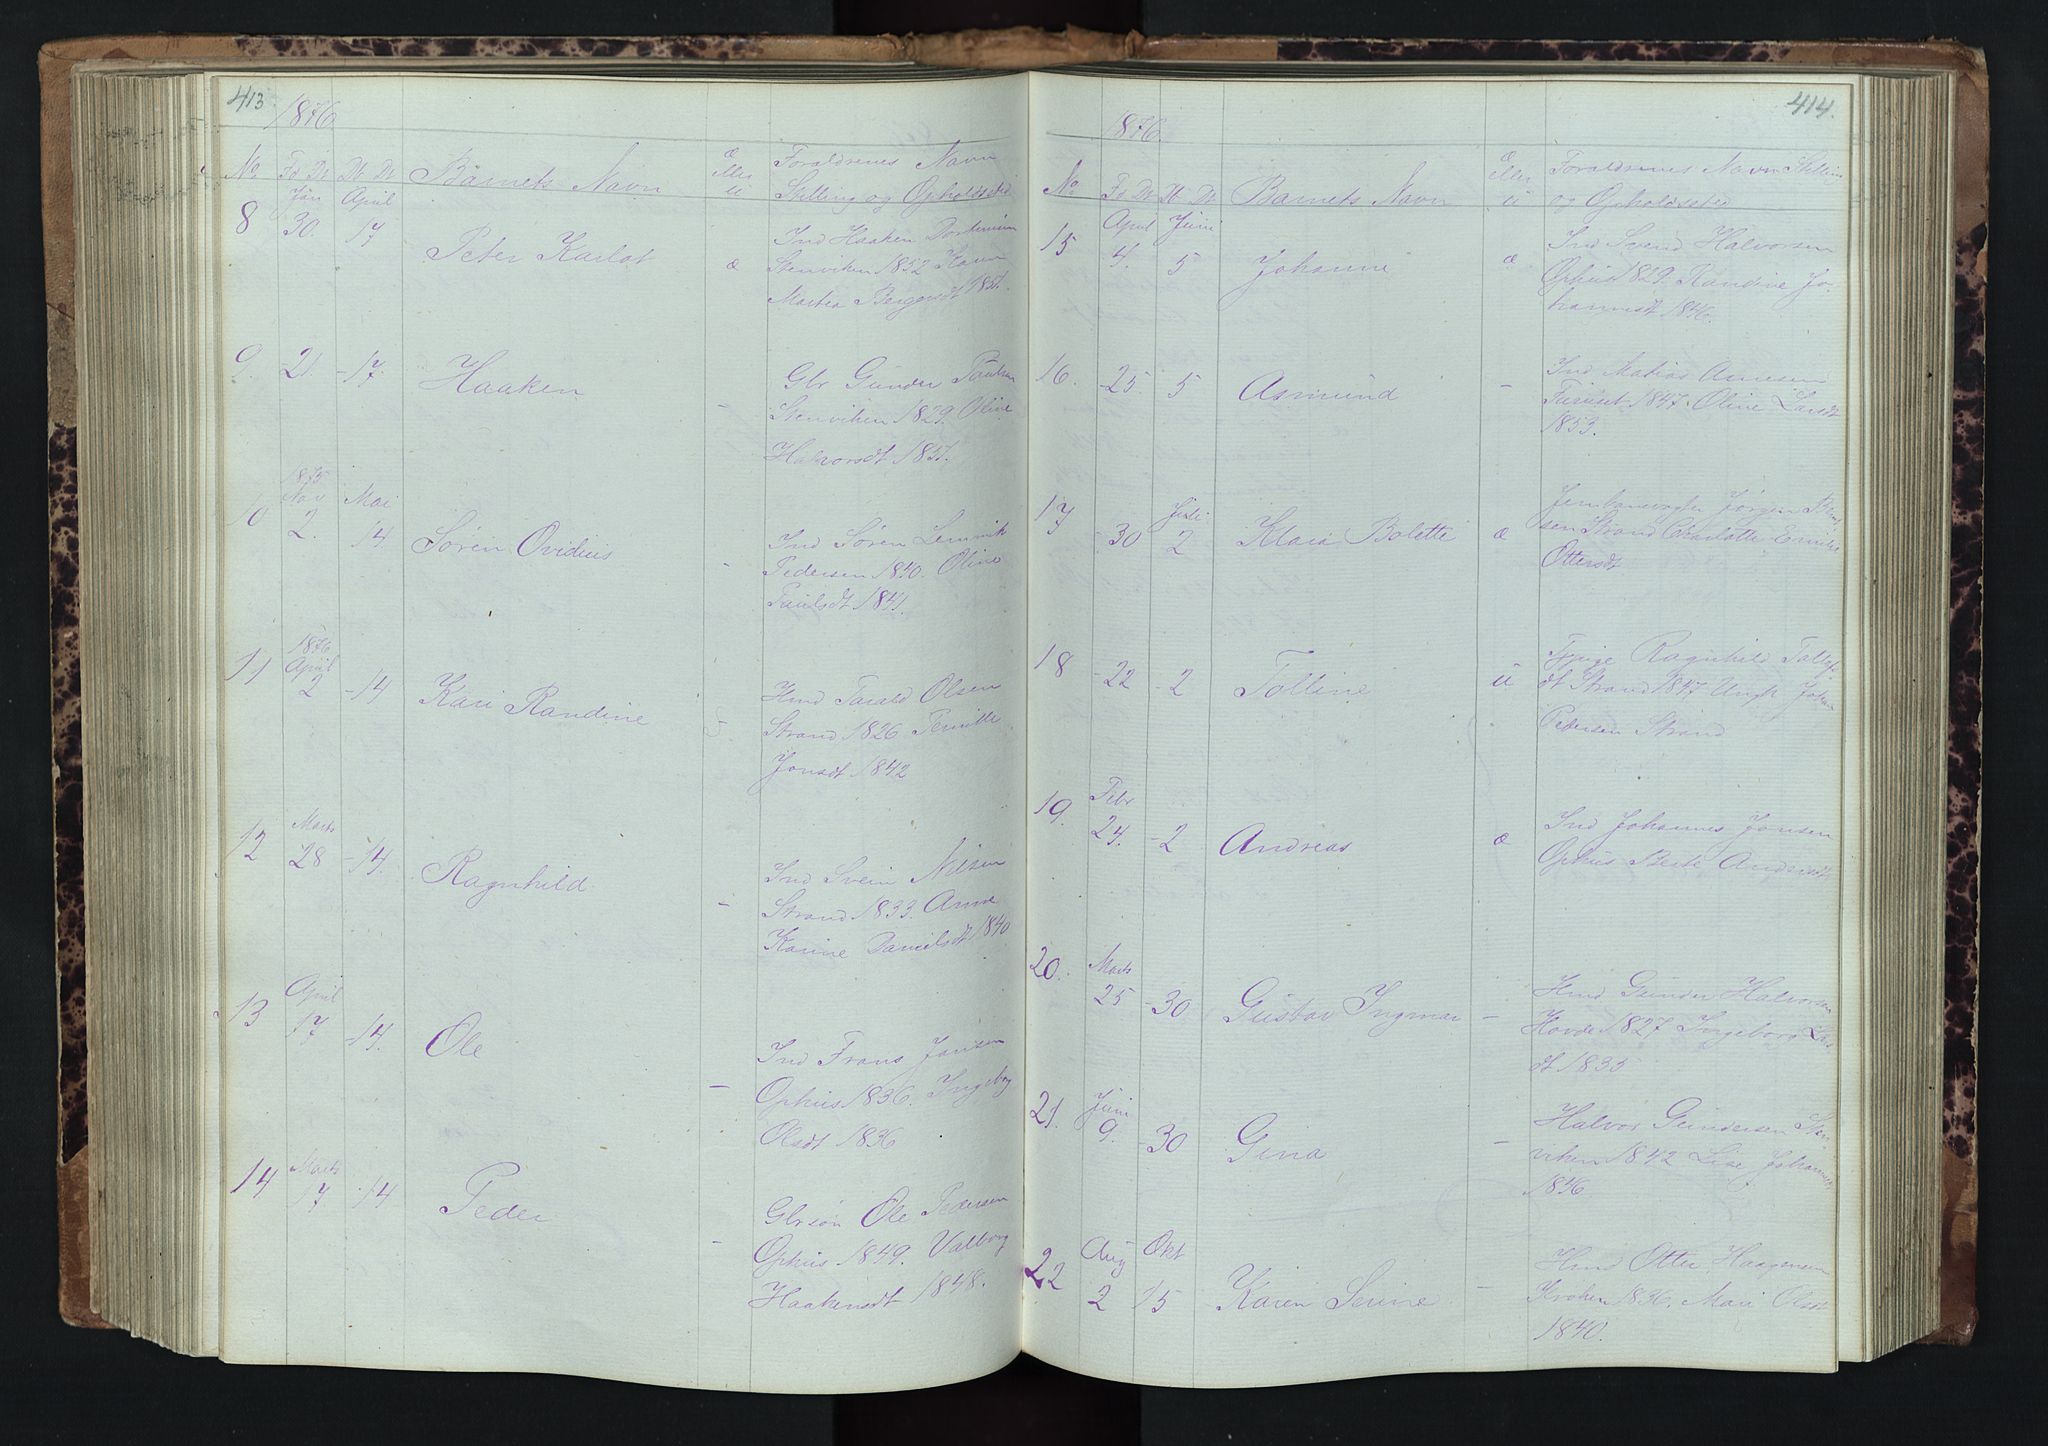 413
1876
No Fd Dt Db Dt Barnets Navn æ eller u Foraldrenes Navn
Stilling og Opholdssted
Jan April
8 30. 17 Peter Karlot æ Ind Haaken Dortinusen
Stenviken 1852 Karen
Martea Bergersdt 1851.
9. 21. -17. Haaken - Gbr Gunder Paulsen
Stenviken 1829. Oline
Halvorsdt 1837.
1875
Nov Mai
10 2. 14. Søren Ovidius - Ind Søren Lemvik
Pedersen 1840. Oline
Paulsdt 1841.
1876
April
11 2 -14 Kari Randine - Hmd Tarald Olsen
Strand 1826 Pernille
Jonsdt 1842
Marts
12 28 -14. Ragnhild - Ind Svein Nilsen
Strand 1833. Anne
Karine Danielsdt 1840
April
13 17 -14. Ole - Ind Frans Jansen
Ophus 1836. Ingeborg
Olsdt 1836
Marts
14 17. -14 Peder - Gbrsøn Ole Pedersen
Ophus 1849. Valborg
Haakensdt 1848.
414.
1876.
No Fd Dt Db Dt Barnets Navn æ eller u Foraldrenes Navn Stilling
og Opholdssted
April Juni
15 4. 5 Johanne æ Ind Svend Halvorsen
Ophus 1829. Randine Jo-
hannesdt 1846.
16. -25. 5 Asmund - Ind Matias Arnesen
1847. Oline Larsdt
1853.
Juli
17 -30 2 Klara Bolette æ Jernbanevogter Jørgen
Strand Charlotte Emilie
Ottersdt
18 -22 -2 Tolline u Pige Ragnhild
Strand 1847 Ungk Johan
Pedersen Strand
Febr
19. 24. -2 Andreas æ Ind Johannes Jonsen
Ophus Berte Andersdt
Marts
20. 25 -30 Gustav Ingmar - Hmd Gunder Halvorsen
Hovde 1827 Ingeborg
dt 1835
Juni
21. 9. -30 Gina - Halvor Gundersen Sten-
viken 1842 Lise Johannesdt
1846
Aug Okt
22 2 15 Karen Serine - Hmd Otter Haagensen
Kroken 1836. Mari Olsdt
1840.